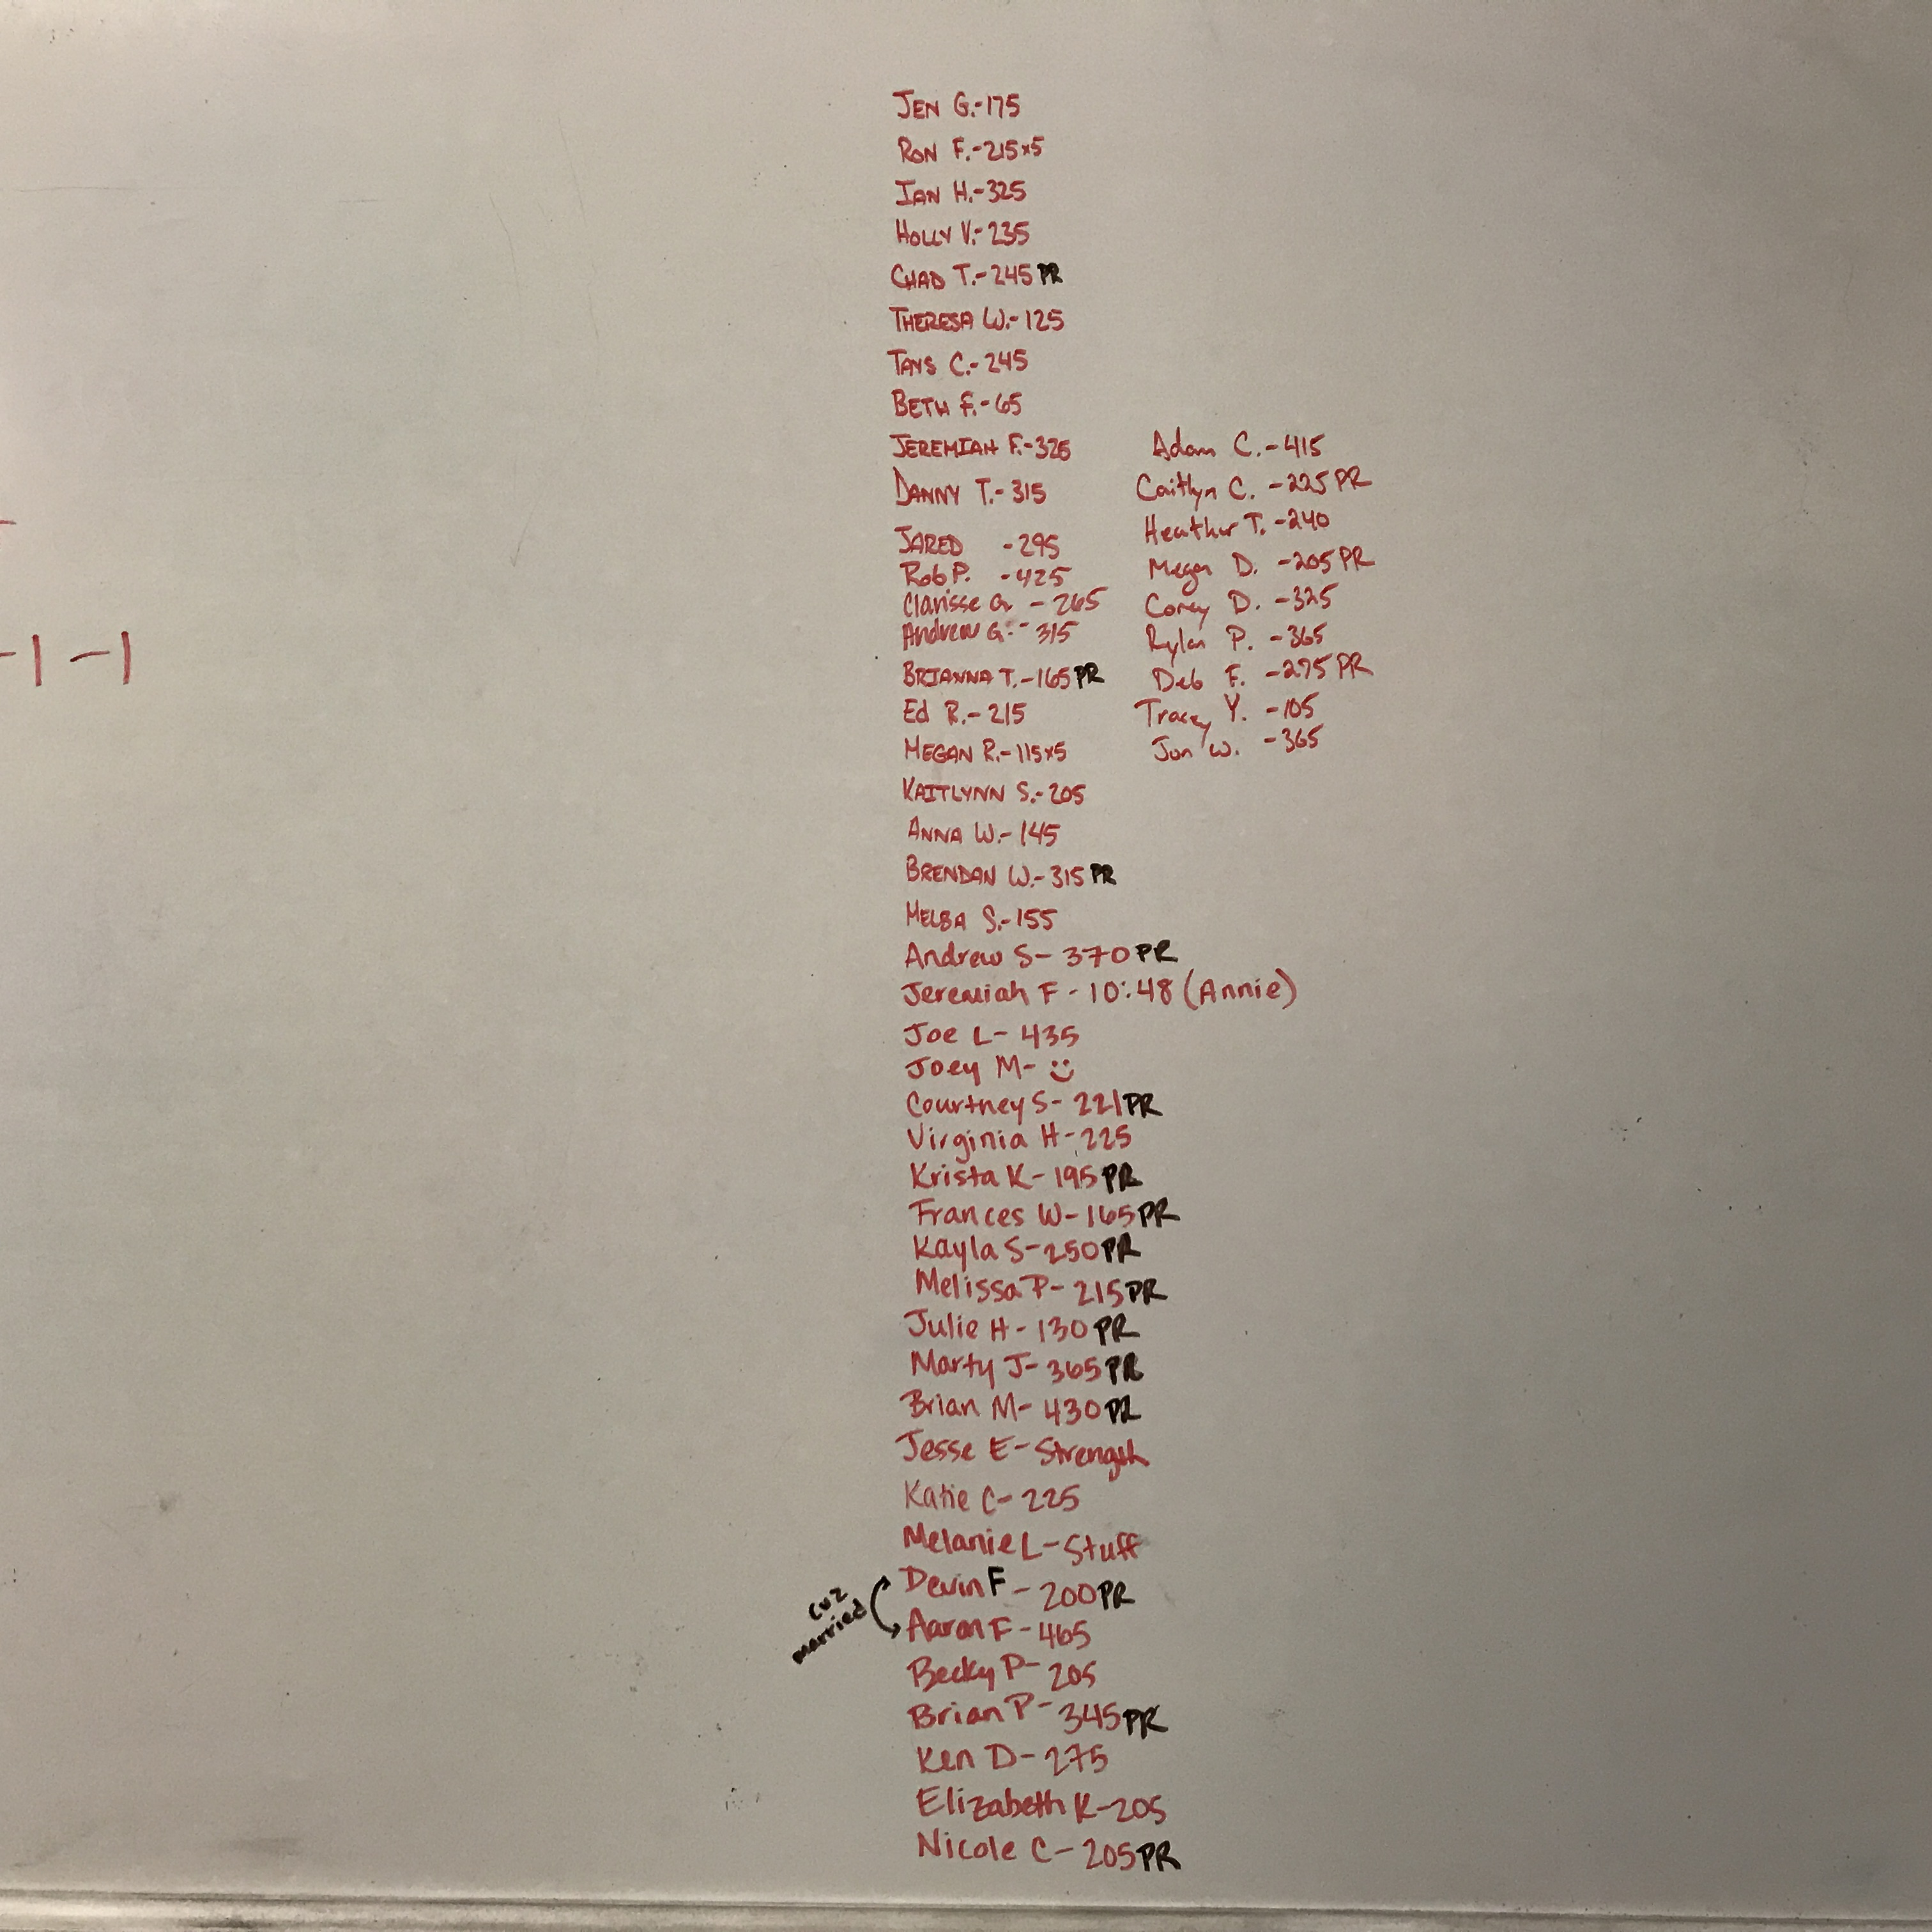 -1-1
JEN G.-175
RON F.-215x5
IAN H.-325
HOLLY V.-235
CHAD T.-245 PR
THERESA W.-125
TAYS C.-245
BETH F.-65
JEREMIAH F.-325
DANNY T.-315
JARED -295
Rob P. -425
Clarisse G. - 265
Andrew G. - 315
BRIANNA T.-165 PR
Ed R.-215
MEGAN R.-115x5
KAITLYNN S.-205
ANNA W.-145
BRENDAN W.-315 PR
MELBA S.-155
Andrew S- 370 PR
Jeremiah F - 10:48 (Annie)
Joe L- 435
Joey M- :)
Courtney S- 221 PR
Virginia H-225
Krista K- 195 PR
Frances W-165 PR
Kayla S-250 PR
Melissa P- 215 PR
Julie H - 130 PR
Marty J- 365 PR
Brian M- 430 PR
Jesse E- Strength
Katie C- 225
Melanie L- Stuff
Devin F - 200 PR
married
Aaron F - 465
Becky P- 205
Brian P- 345 PR
Ken D- 275
Elizabeth K-205
Nicole C- 205 PR
Adam C. -415
Caitlyn C. -225 PR
Heather T. -240
Megan D. -205 PR
Corey D. -325
Rylan P. -365
Deb F. -275 PR
Tracey Y. -105
Jon W. -365